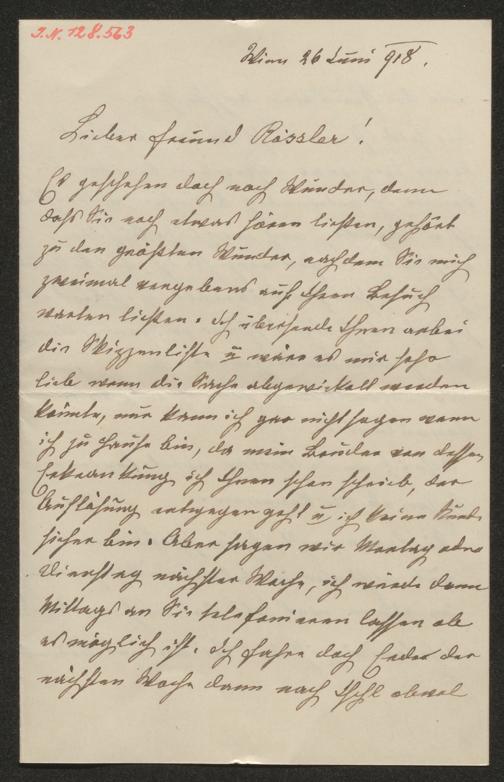 J.N. 128.563
Wien 26 Juni 918.
Lieber Freund Rössler!
Es geschehen doch noch Wunder, denn
dahs Sie noch etwas hören liehsen, gehört
zu den gröhsten Wunder, nachdem Sie mich
zweimal vergebens auf Ihren Besuch
warten liehsen. Ich übersende Ihnen anbei
die Skizzenliste u wäre es mir sehr
lieb wenn die Sache abgewickelt werden
könnte, nur kann ich gar nicht sagen wann
ich zu Hause bin, da mein Bruder von dessen
Erkrankung ich Ihnen schon schrieb, der
Auflösung entgegen geht u ich keine Stunde
sicher bin. Aber sagen wir Montag oder
Dienstag nächster Woche, ich würde dann
Mittags an Sie telefonieren lassen ob
es möglich ist. Ich fahre doch Ende der
nächsten Woche dann nach Ischl obwol